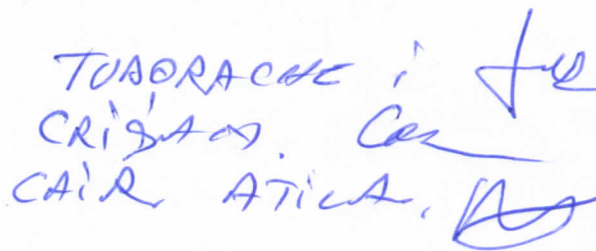 TUDORACHE i
CRIȘAN.
CAIR ATILA.